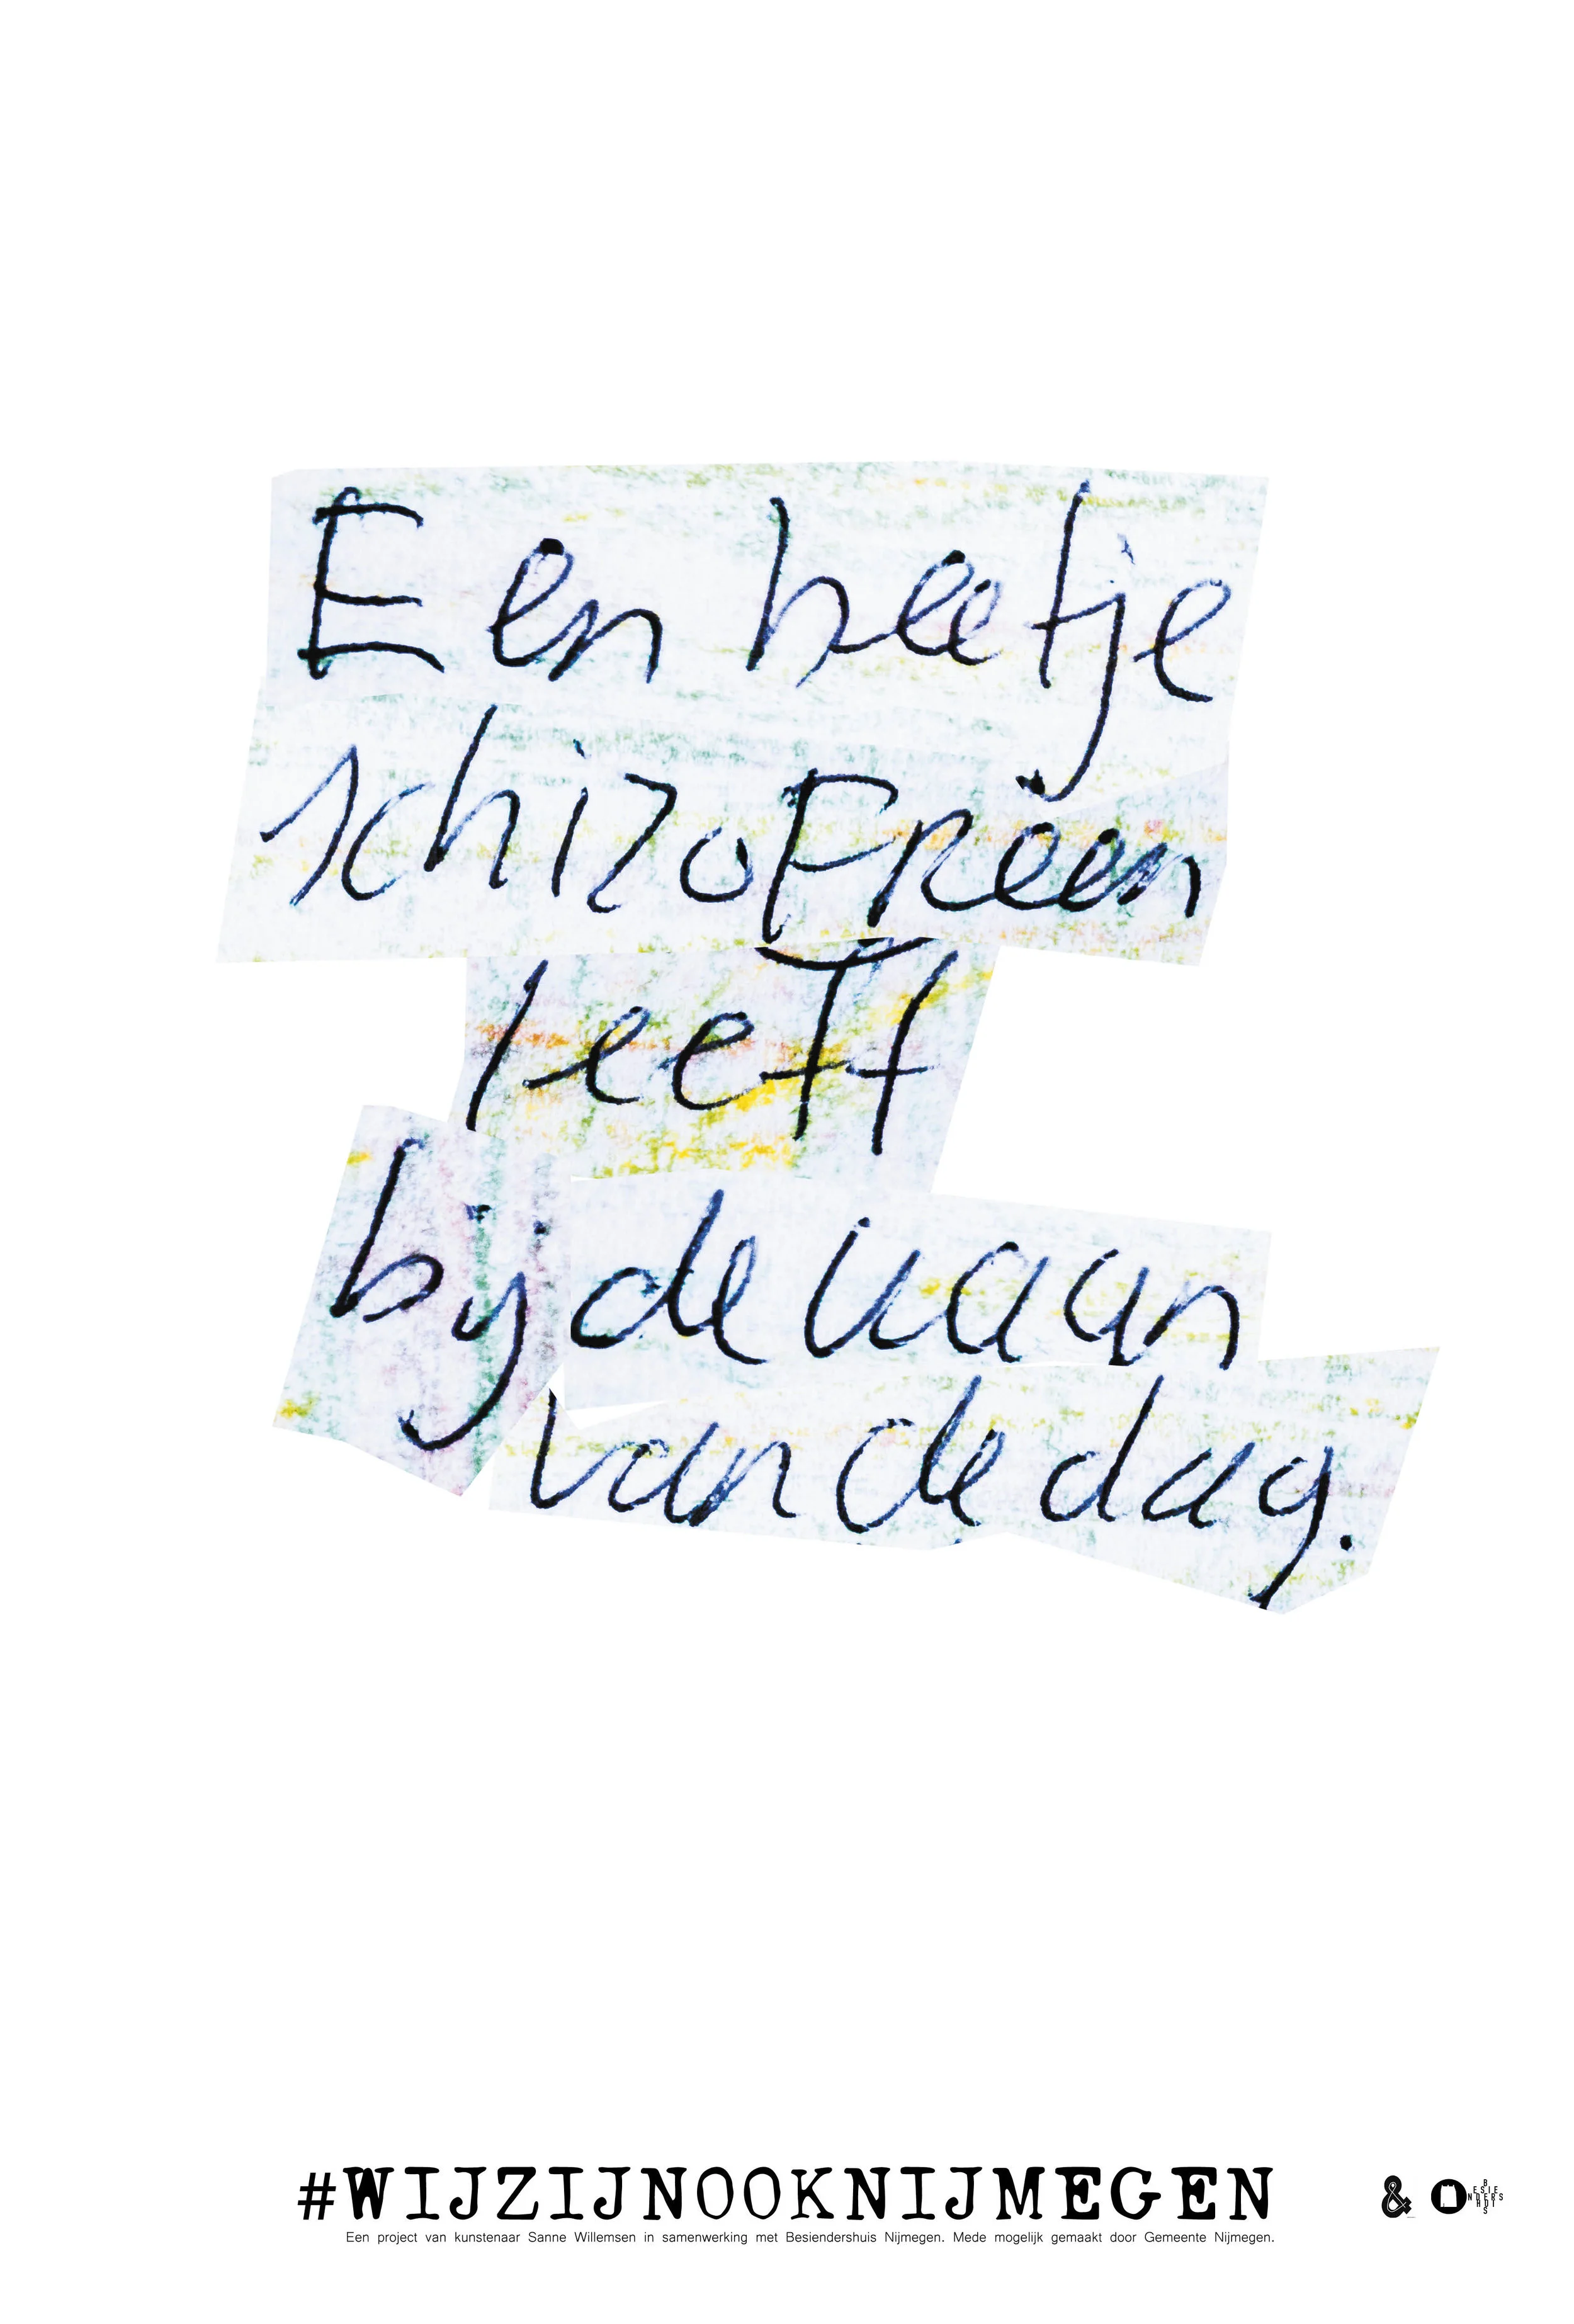 Een beetje
schizofreen
leeft
bij de waan
van de dag.
#WIJZIJNOOKNIJMEGEN
Een project van kunstenaar Sanne Willemsen in samenwerking met Besiendershuis Nijmegen. Mede mogelijk gemaakt door Gemeente Nijmegen.
&
BESIENDERSHUIS